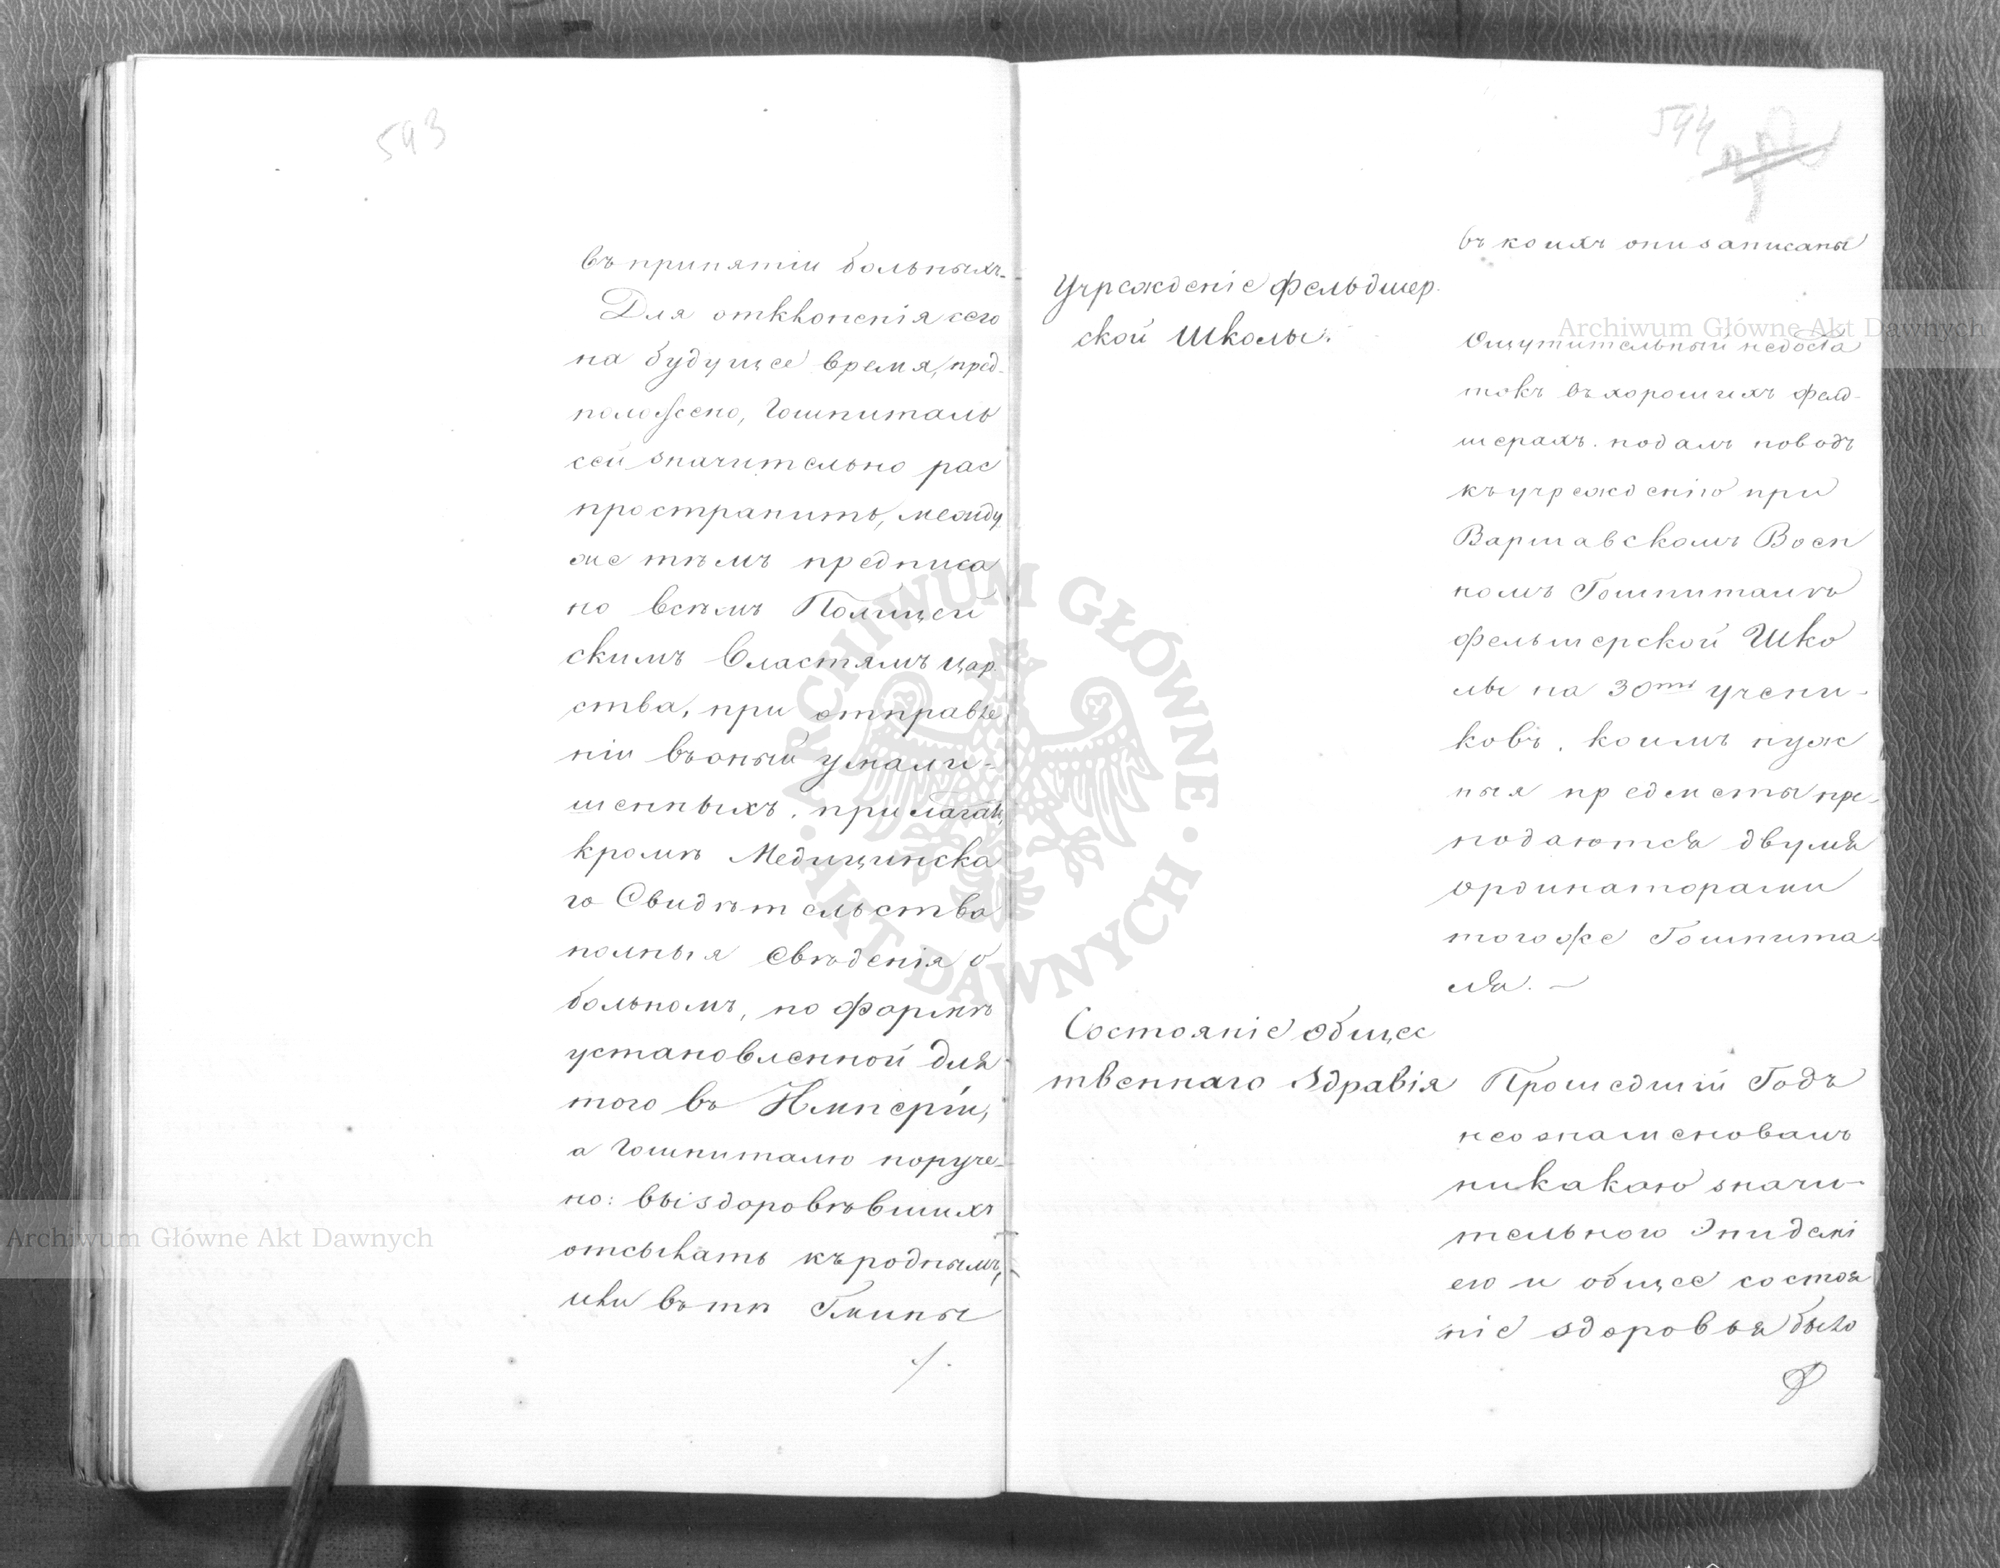 593
въ принятіи больныхъ.
Для отклоненія сего
на будущее время, пред-
положено, Гошпиталь
сей значительно рас
пространить, между
же тѣмъ предписа
но всѣмъ Полицей
скимъ Властямъ Цар
ства, при отправле
ніи въ оный умали-
шенныхъ, прилагать,
кромѣ Медицинска
го Свидѣтельства
полныя свѣденія о
больномъ, по формѣ
установленной для
того въ Имперіи,
а Гошпиталю поруче-
но: выздоровѣвшихъ
отсылать къ роднымъ,
или въ тѣ Гмины
./.
594
въ коихъ они записаны
Учрежденіе Фельдшер
ской Школы.
Ощутительный недоста
токъ въ хорошихъ фелд-
шерахъ подалъ поводъ
къ учрежденію при
Варшавскомъ Воен
номъ Гошпиталѣ
Фельшерской Шко
лы на 30ть учени-
ковъ, коимъ нуж
ныя предметы пре-
подаются двумя
Ординаторами
того же Гошпита-
ля. —
Состояніе общес
твеннаго Здравія
Прошедшій Годъ
неознаменованъ
никакою значи-
тельного Эпидемі
ею и общее состоя
ніе здоровья было
Archiwum Główne Akt Dawnych
Archiwum Główne Akt Dawnych
ARCHIWUM GŁÓWNE · AKT DAWNYCH ·